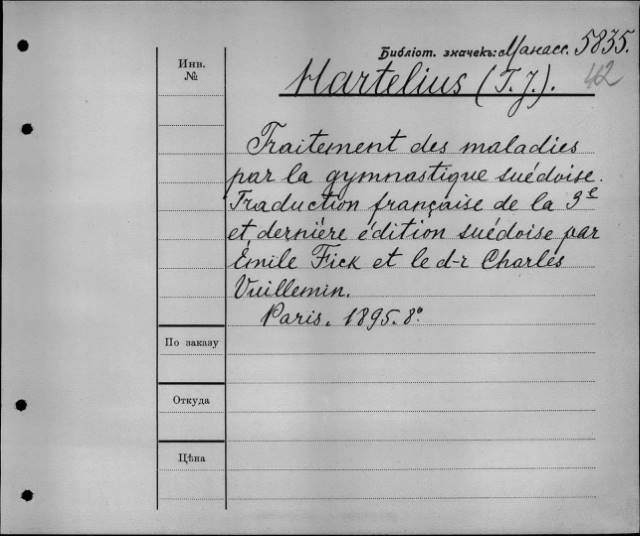 Библіот. значекъ: Манасс. 5835.
42
Инв.
№
Hartelius (T. J.).
Traitement des maladies
par la gymnastique suédoise.
Traduction française de la 3e
et dernière édition suédoise par
Émile Fick et le d-r Charles
Vuillemin.
Paris. 1895. 8°.
По заказу
Откуда
Цѣна